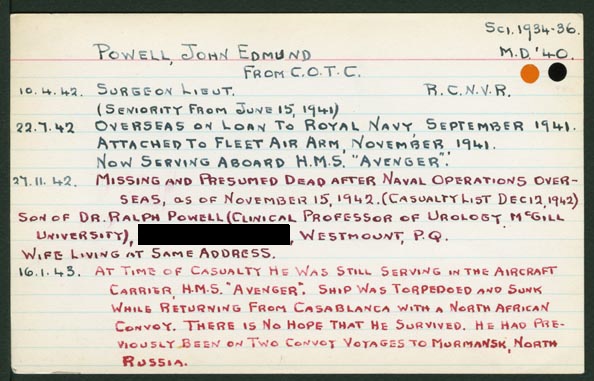 Sci. 1934-36.
POWELL, JOHN EDMUND M.D. '40.
FROM C.O.T.C.
10.4.42. SURGEON LIEUT. R.C.N.V.R.
(SENIORITY FROM JUNE 15, 1941)
22.7.42 OVERSEAS ON LOAN TO ROYAL NAVY, SEPTEMBER 1941.
ATTACHED TO FLEET AIR ARM, NOVEMBER, 1941.
NOW SERVING ABOARD H.M.S. "AVENGER".
27.11.42. MISSING AND PRESUMED DEAD AFTER NAVAL OPERATIONS OVER-
SEAS, AS OF NOVEMBER 15, 1942. (CASUALTY LIST DEC 12, 1942)
SON OF DR. RALPH POWELL (CLINICAL PROFESSOR OF UROLOGY, MCGILL
UNIVERSITY), , WESTMOUNT, P.Q.
WIFE LIVING AT SAME ADDRESS.
16.1.43. AT TIME OF CASUALTY HE WAS STILL SERVING IN THE AIRCRAFT
CARRIER, H.M.S. "AVENGER". SHIP WAS TORPEDOED AND SUNK
WHILE RETURNING FROM CASABLANCA WITH A NORTH AFRICAN
CONVOY. THERE IS NO HOPE THAT HE SURVIVED. HE HAD PRE-
VIOUSLY BEEN ON TWO CONVOY VOYAGES TO MURMANSK, NORTH
RUSSIA.